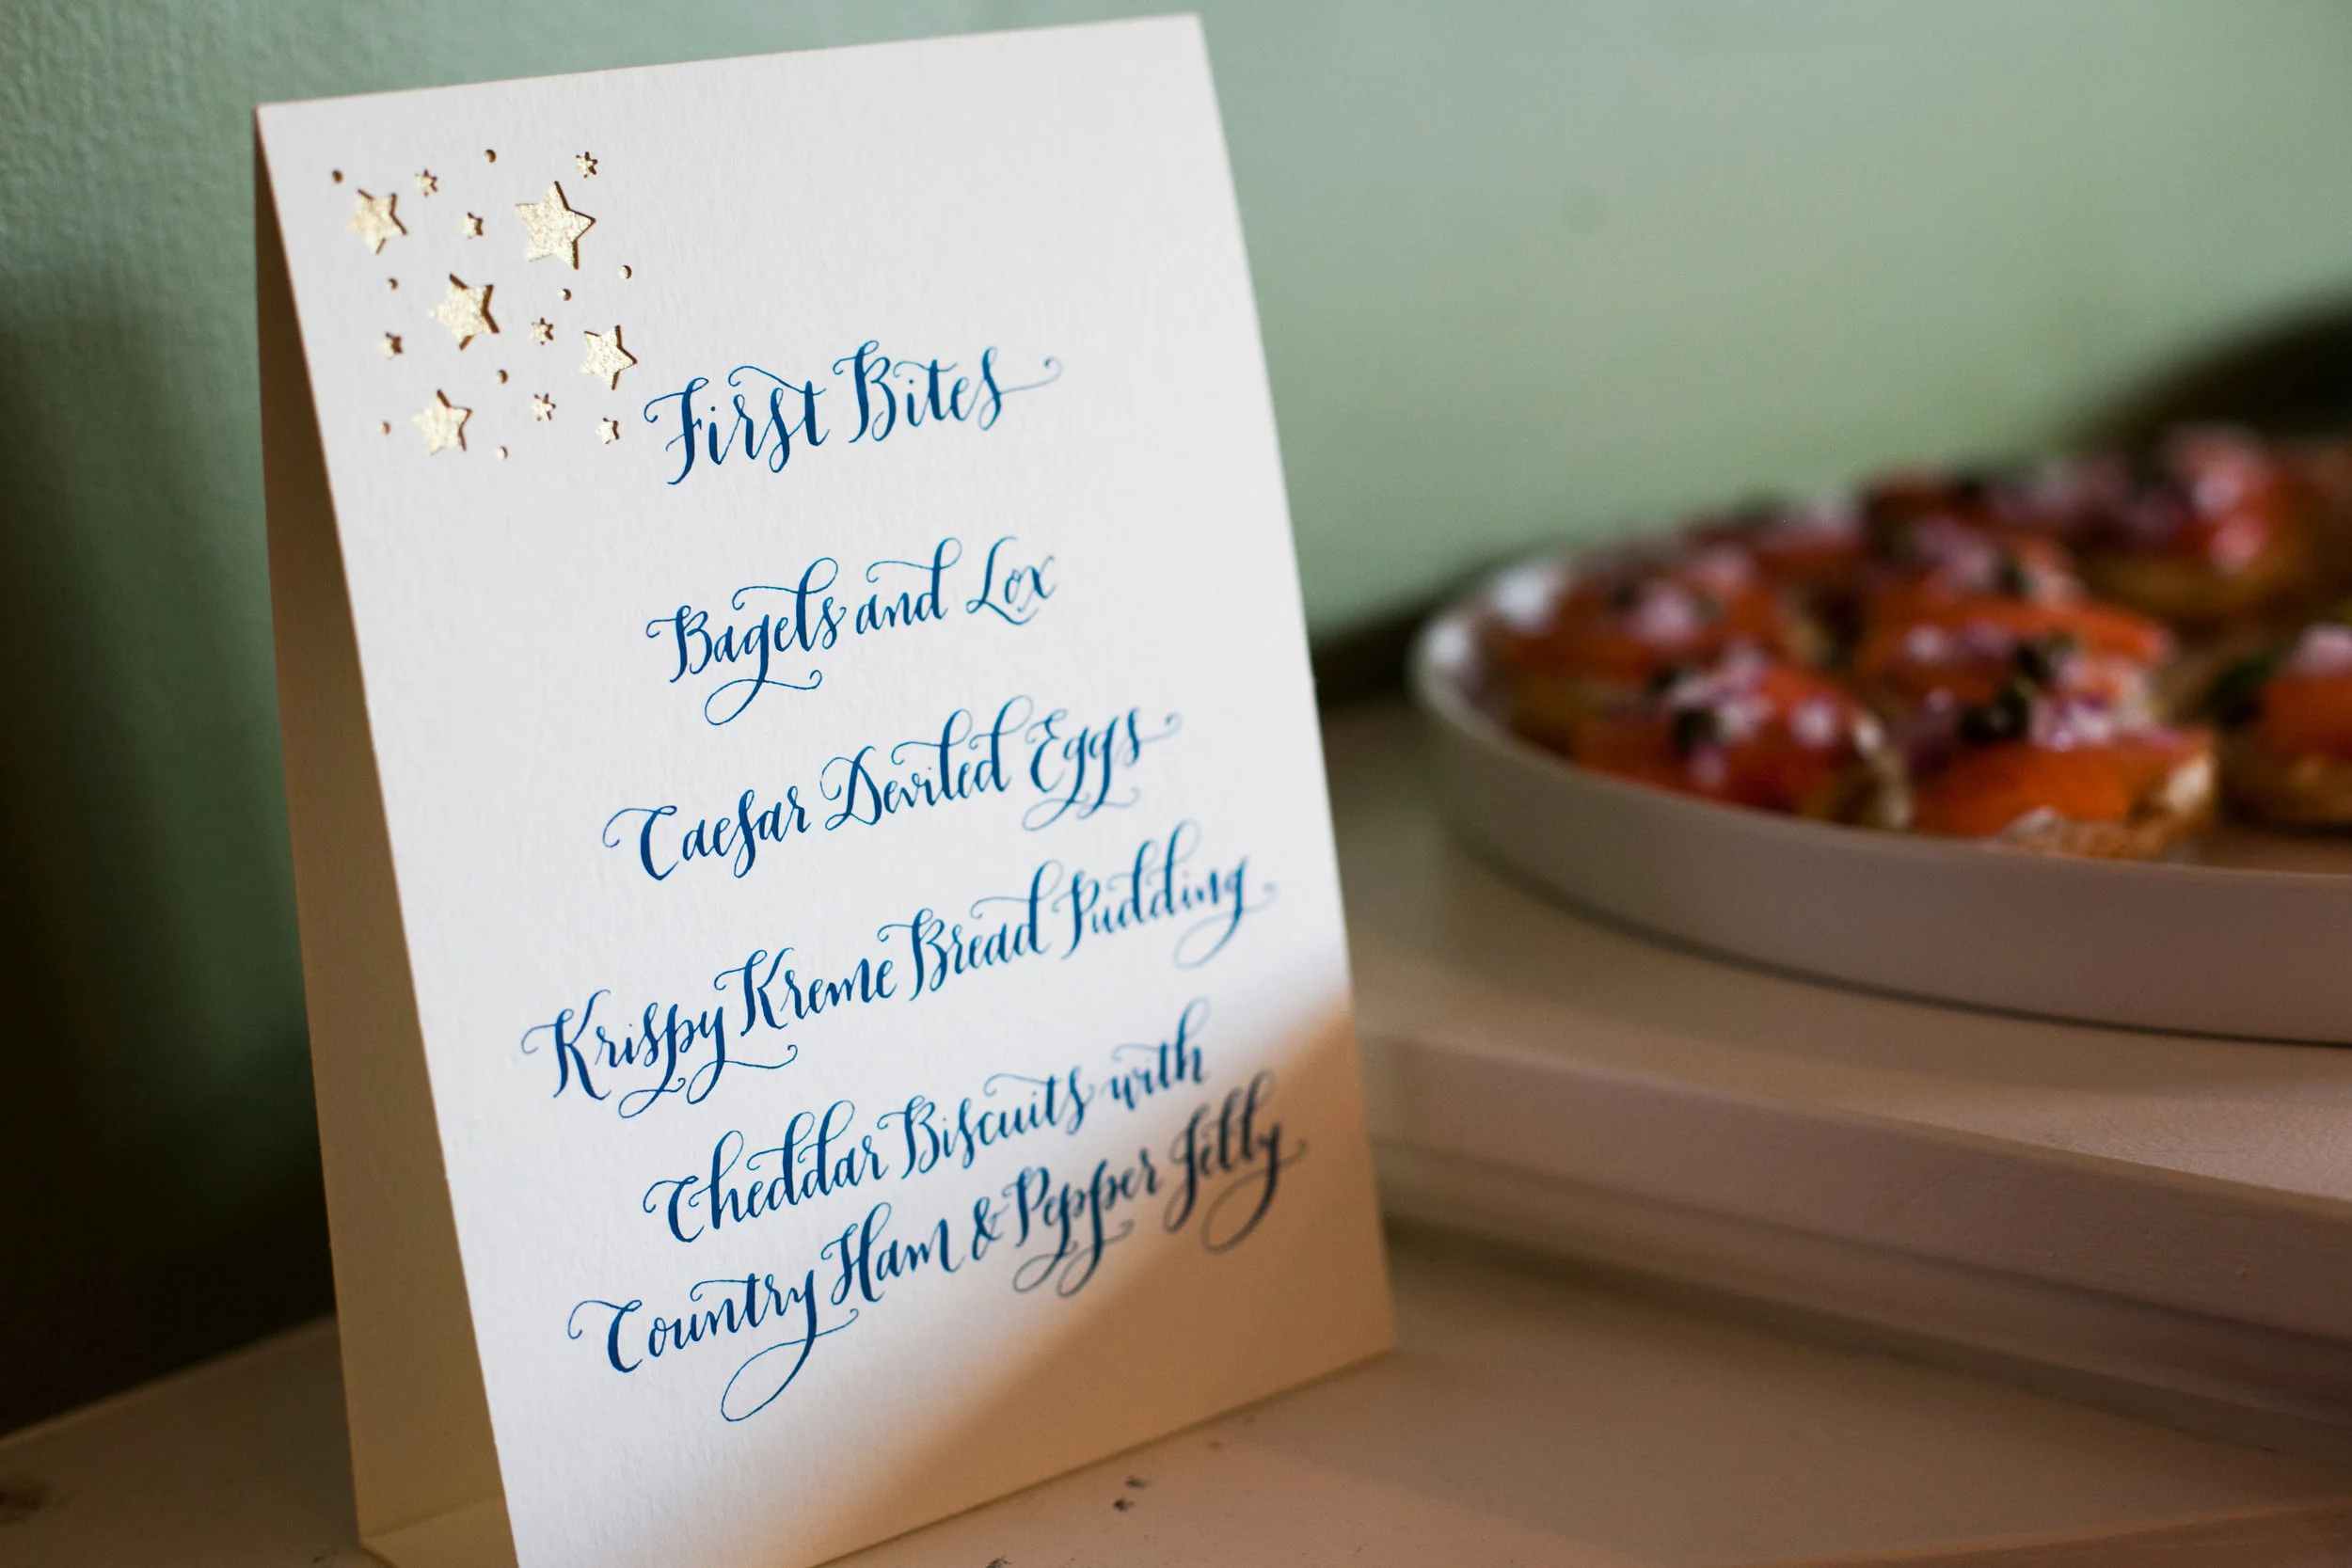 First Bites
Bagels and Lox
Caesar Deviled Eggs
Krispy Kreme Bread Pudding
Cheddar Biscuits with
Country Ham & Pepper Jelly